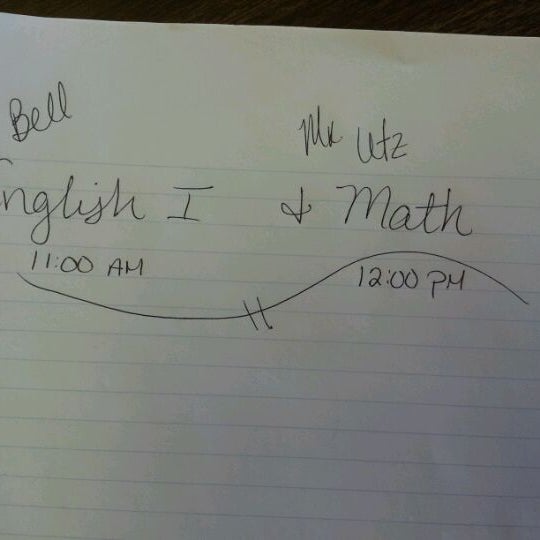 Bell
Mr. Utz
English I & Math
11:00 AM
12:00 PM